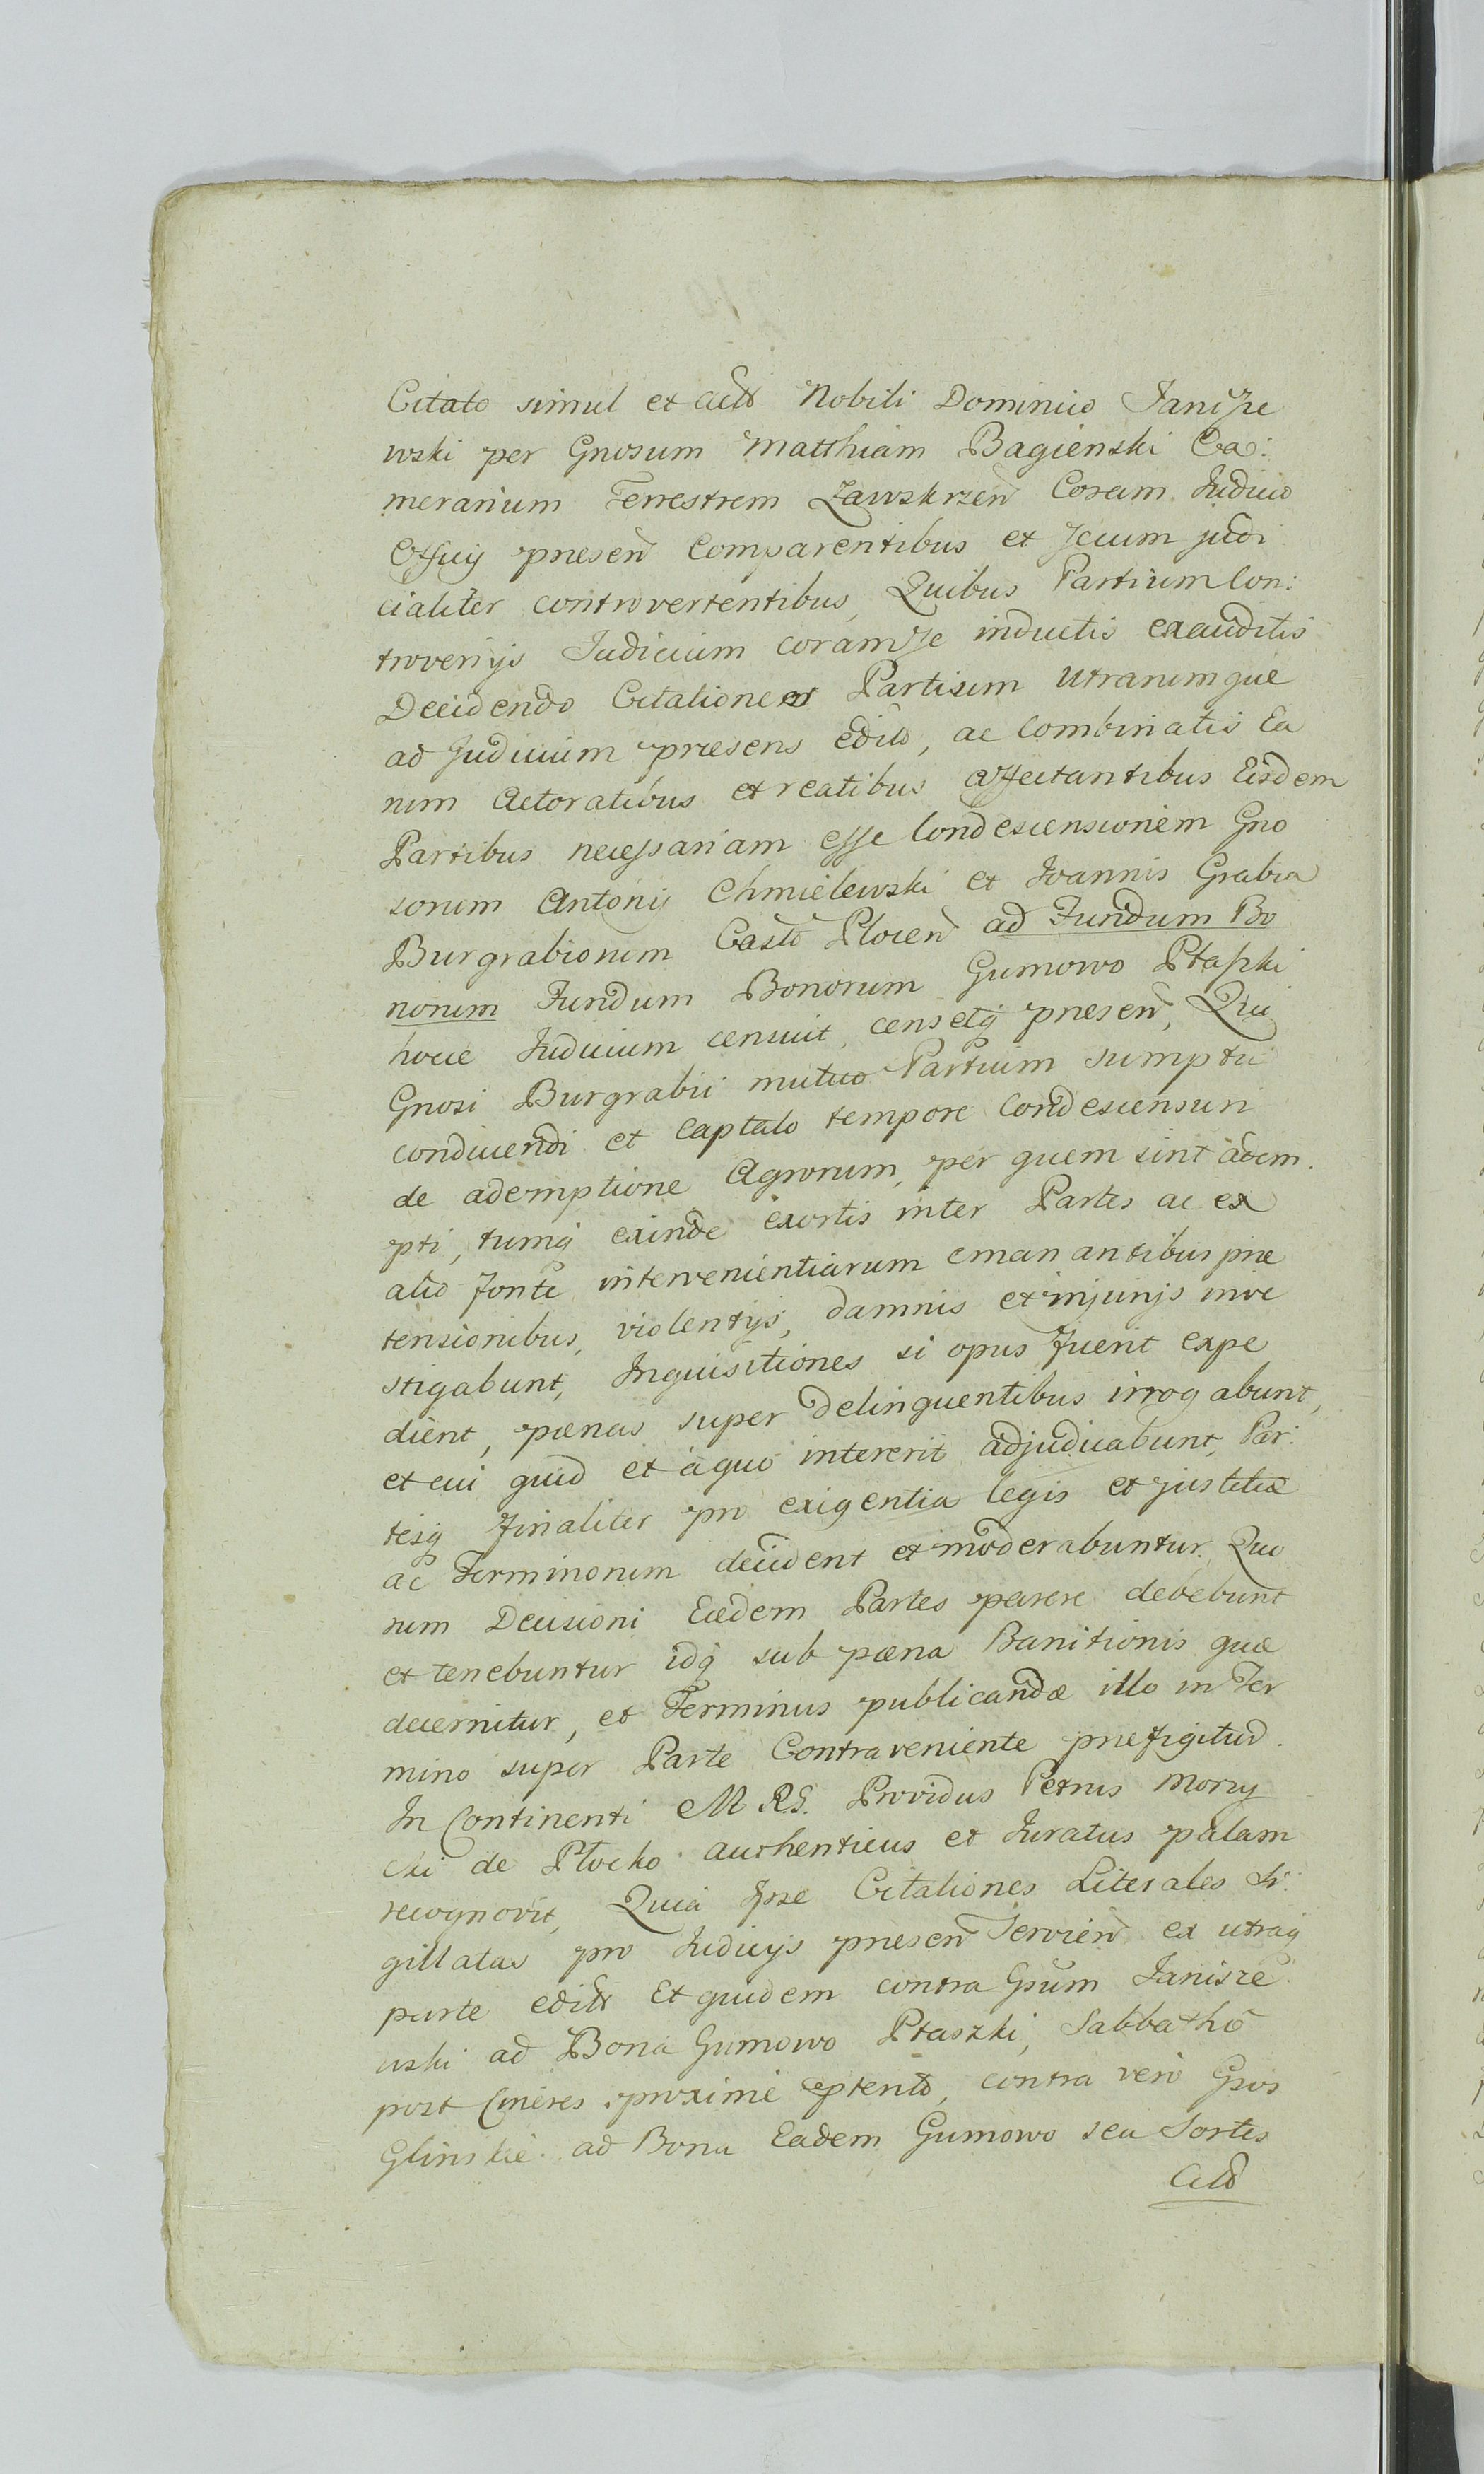 Citato simul et Nobili Dominico Janisze
wski per Gnosum Matthiam Bagienski Ca:
merarium Terrestrem Zawskrzeń Coram Judicio
Officij præsen Comparentibus et secum judi
cialiter controvertentibus, Quibus Partium Con:
troversijs Judicium coram se inductis exauditis
Decidendo Citationes Partium Utrarumque
ad Judicium præsens Edito, ac Combinatis Ea
rum Actoratibus et reatibus affectantibus Eisdem
Partibus necessariam esse Condescensionem Gno
sorum Antonij Chmielewski et Joannis Grabia
Burgrabiorum Castr Plocen ad Fundum Bo
norum Fundum Bonorum Gumowo Ptaszki
hocce Judicium censuit, censetq præsen, Qui
Gnosi Burgrabii mutuo Partium sumptu
conducendi et Captato tempore Condescensuri
de ademptione Agrorum, per quem sint adem.
pti, tumq exinde exortis inter Partes ac ex
alio fonte intervenientiarum emanantibus præ
tensionibus, violentijs, damnis et injurijs inve
stigabunt, Inquisitiones si opus fuerit expe
dient, pænas super delinquentibus irrogabunt,
et cui quid et àquo intererit adjudicabunt, Par:
tesq finaliter pro exigentia legis et justitiæ
ac Terminorum decident et moderabuntur. Quo
rum Decisioni Eædem Partes parere debebunt
et tenebuntur idq sub pæna Banitionis quæ
decernitur, et Terminus publicandæ illo in Ter
mino super Parte Contraveniente præfigitur.
In Continenti M R.G. Providus Petrus Morzy
cki de Płocko authenticus et Juratus palam
recognovit, Quia Ipse Citationes Literales Si:
gillatas pro Judicijs præsen Servien ex utraq
parte edit Et quidem contra Gsum Janisze
wski ad Bona Gumowo Ptaszki, Sabbatho
post Cineres proxime contra vero Gsos
Glinskie ad Bona Eadem Gumowo seu Sortes